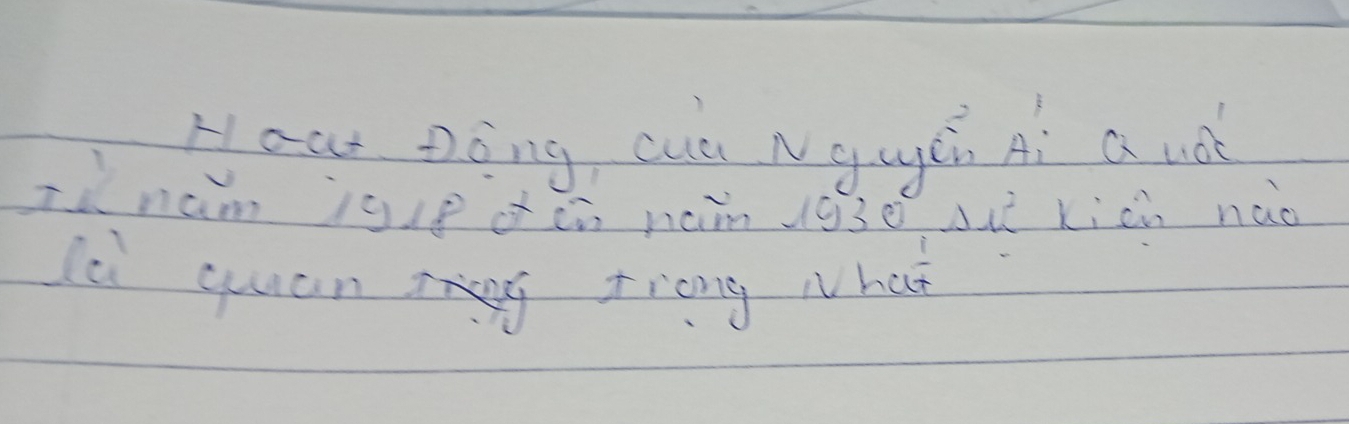 Hoạt Động của Nguyễn Ái Quốc
Từ năm 1918 đến năm 1930 sự kiện nào
là quan trọng trọng Nhất